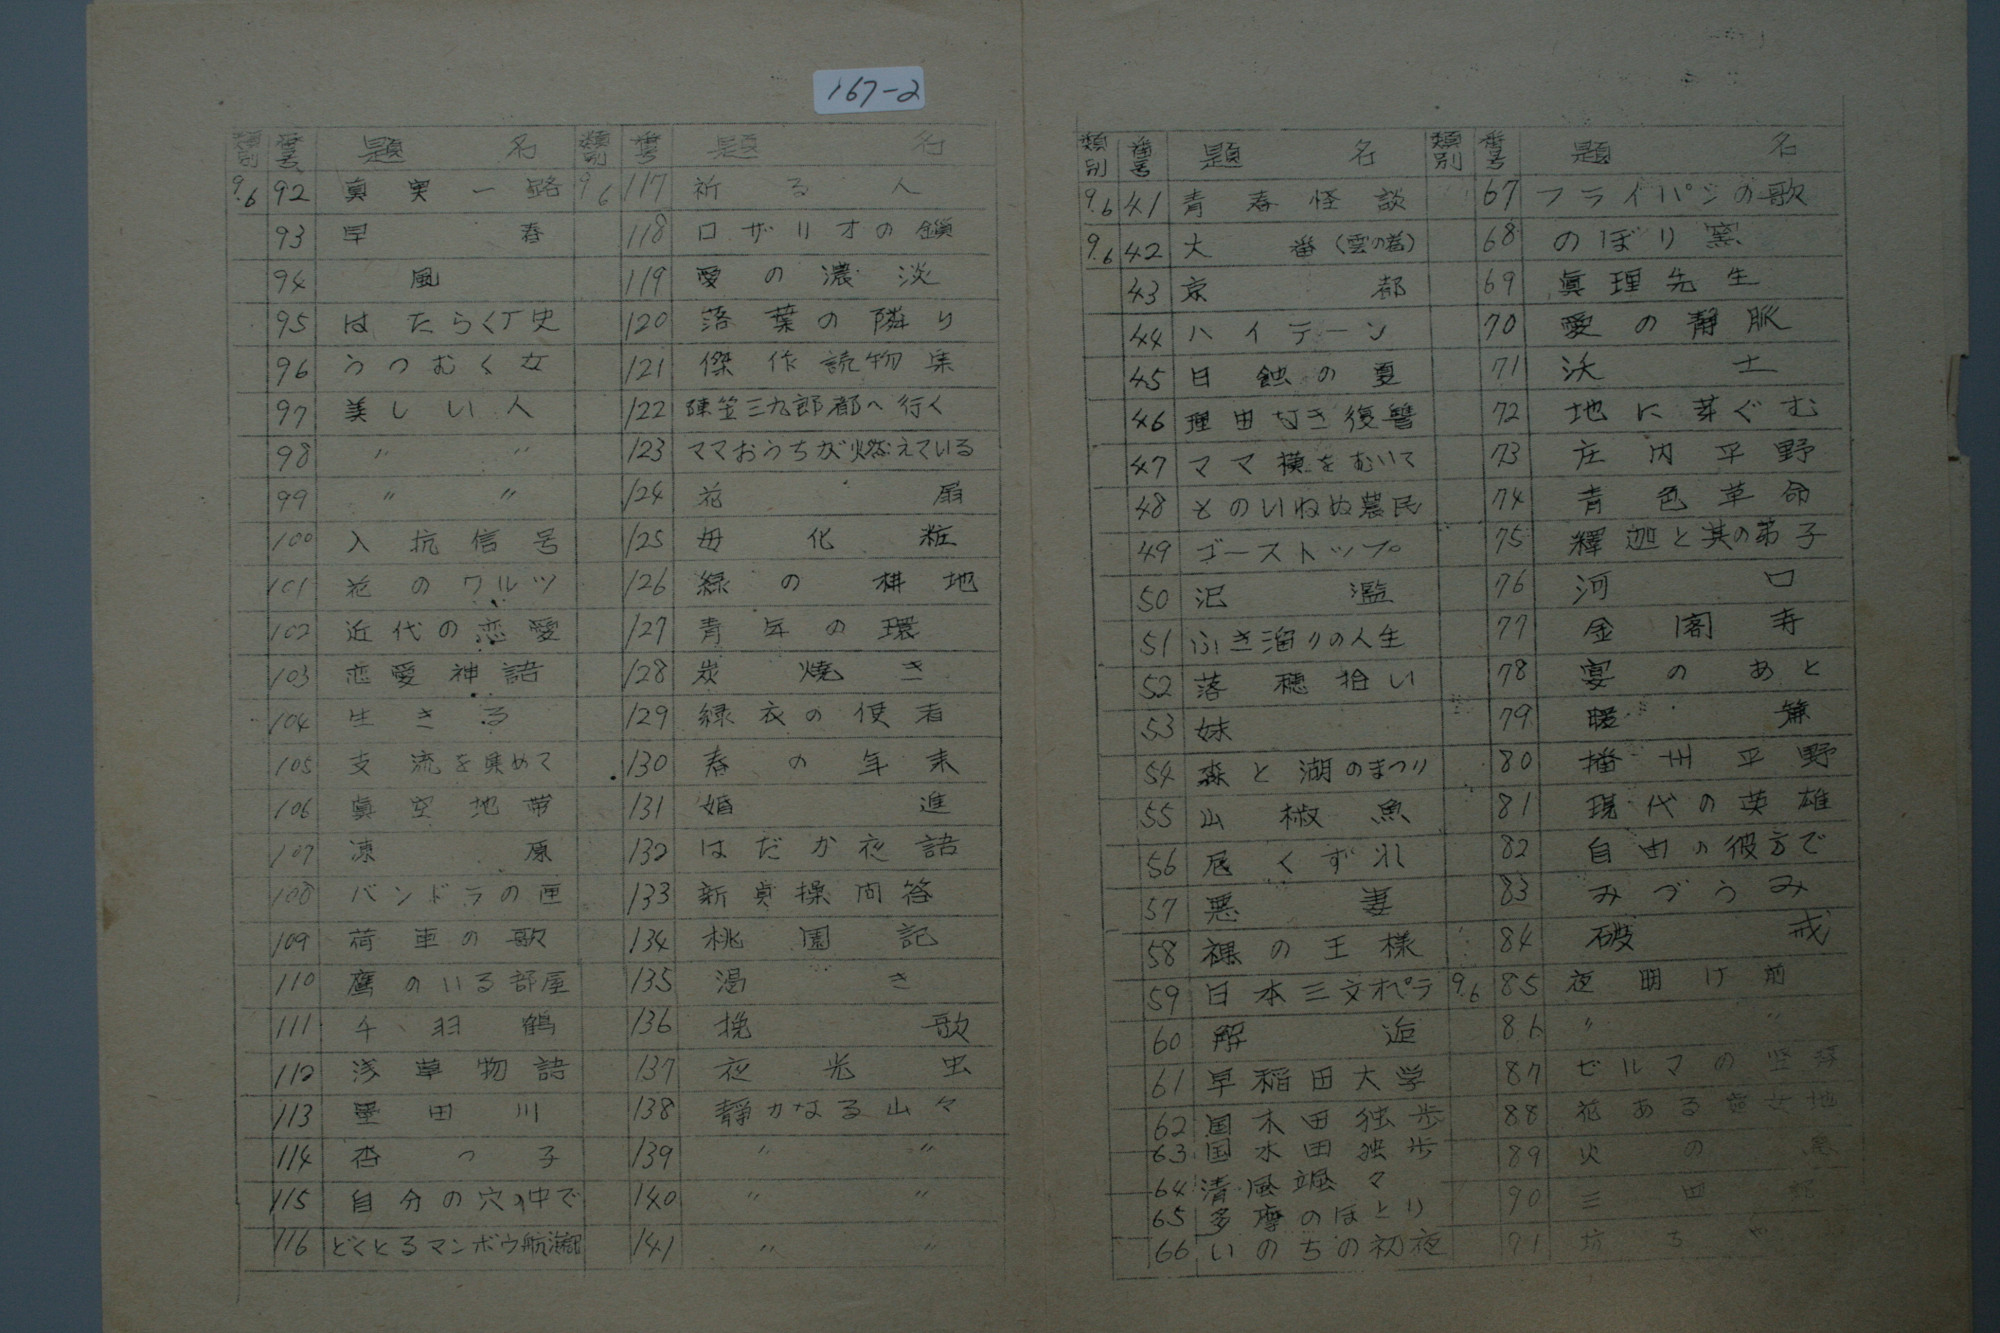 167-2
類別 番号 題名 類別 番号 題名
9.6 92 真実一路
93 早春
94 風
95 はたらく丁史
96 うつむく女
97 美しい人
98 〃 〃
99 〃 〃
100 入抗信号
101 花のワルツ
102 近代の恋愛
103 恋愛神語
104 生きる
105 支流を集めて
106 真空地帯
107 凍原
108 パンドラの匣
109 荷車の歌
110 鷹のいる部屋
111 千羽鶴
112 浅草物語
113 墨田川
114 杏っ子
115 自分の穴の中で
116 どくとるマンボウ航海記
9.6 117 祈る人
118 ロザリオの鎖
119 愛の濃淡
120 落葉の隣り
121 傑作読物集
122 陳笠三九郎都へ行く
123 ママおうちが燃えている
124 花扇
125 毎化粧
126 緑の耕地
127 青年の環
128 炭焼き
129 緑衣の使者
130 春の年末
131 婚進
132 はだか夜話
133 新貞操問答
134 桃園記
135 渇き
136 挽歌
137 夜光虫
138 静かなる山々
139 〃 〃
140 〃 〃
141 〃 〃
類別 番号 題名 類別 番号 題名
9.6 41 青春怪談
9.6 42 大番(雲の巻)
43 京都
44 ハイテーン
45 日蝕の夏
46 理由なき復讐
47 ママ横をむいて
48 とのいねぬ農民
49 ゴーストップ
50 氾濫
51 ふき溜りの人生
52 落穂拾い
53 妹
54 森と湖のまつり
55 山椒魚
56 尾くずれ
57 悪妻
58 裸の王様
59 日本三文オペラ
60 解逅
61 早稲田大学
62 国木田独歩
63 国木田独歩
64 清風颯々
65 多摩のほとり
66 いのちの初夜
67 フライパンの歌
68 のぼり窯
69 眞理先生
70 愛の静脈
71 沃土
72 地に芽ぐむ
73 庄内平野
74 青色革命
75 釋迦と其の弟子
76 河口
77 金閣寺
78 宴のあと
79 暖簾
80 播州平野
81 現代の英雄
82 自由の彼方で
83 みづうみ
84 破戒
9.6 85 夜明け前
86 〃 〃
87 ゼルマの
88 花ある
89 火の
90 三四郎
91 坊ちゃ